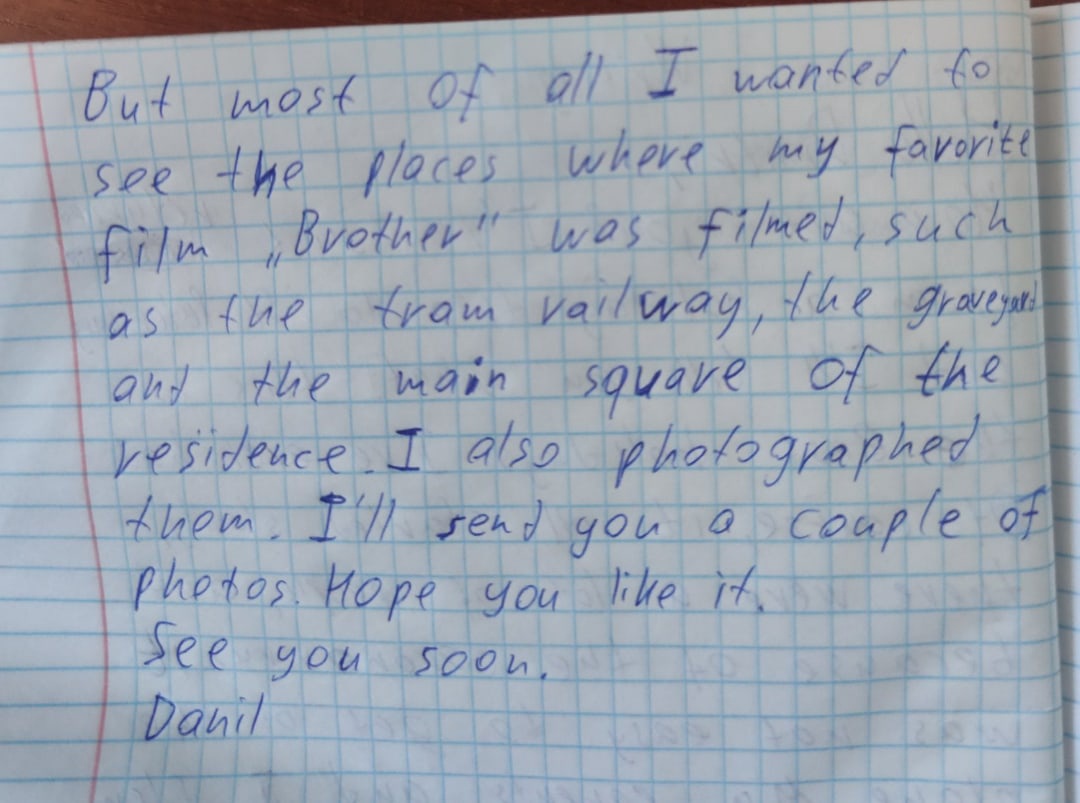 But most of all I wanted to
see the places where my favorite
film „Brother" was filmed, such
as the tram railway, the graveyard
and the main square of the
residence. I also photographed
them. I'll send you a couple of
photos. Hope you like it.
See you soon.
Danil